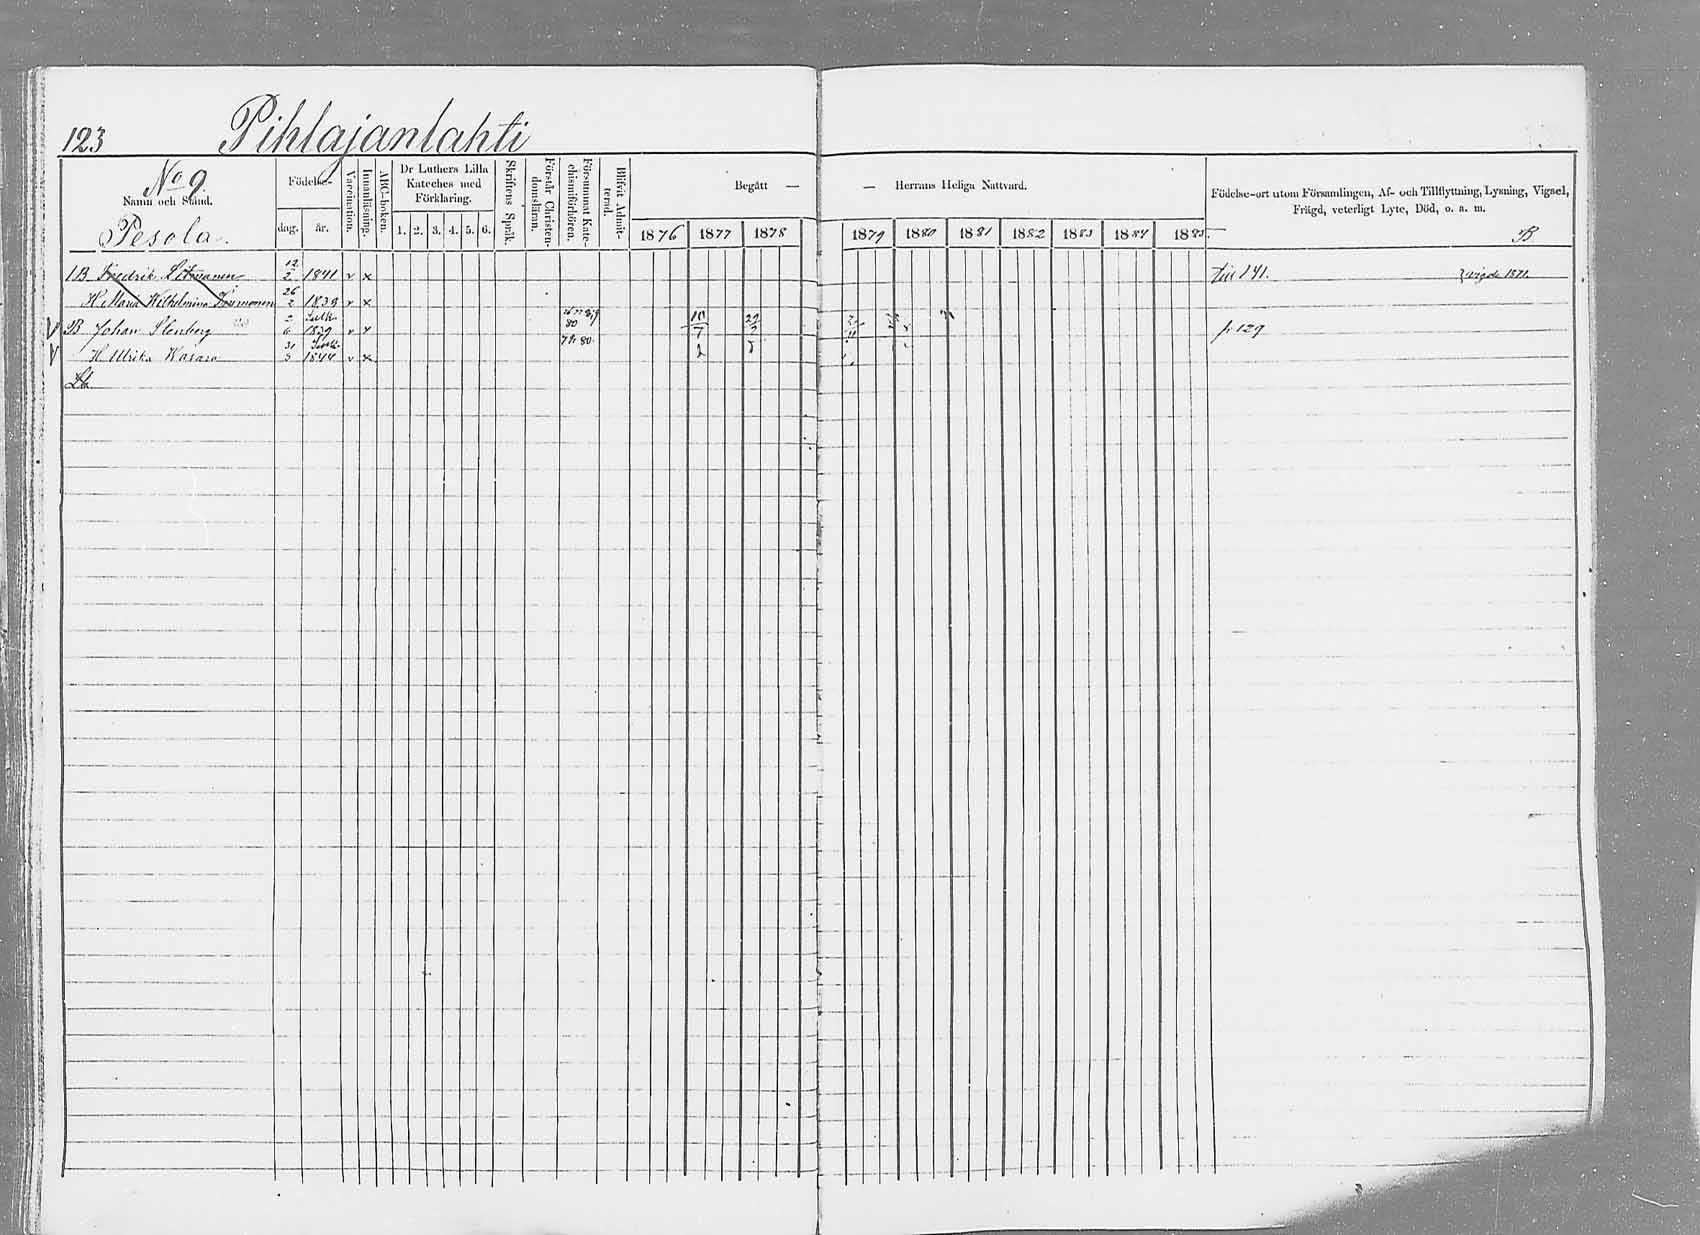 123 Pihlajanlahti
No 9.
Namn och Stånd.
Pesola.
Födelse-
dag. år.
Vaccination.
Innanläsning.
ABC-boken.
Dr Luthers Lilla
Kateches med
Förklaring.
1. 2. 3. 4. 5. 6.
Skriftens Språk.
Förstår Christen-
domsläran.
Försummat Kate-
chismiförhören.
Blifvit Admit-
terad.
Begått —
— Herrans Heliga Nattvard.
1876 1877 1878
1879 1880 1881 1882 1883 1884 1885
Födelse-ort utom Församlingen, Af- och Tillflyttning, Lysning, Vigsel,
Frägd, veterligt Lyte, Död, o. a. m.
B
1B Fredrik 12/2 1841 v x till 141. vigde 1871.
H. Maria Wilhelmina 26/2 1838 v x
B Johan Stenberg 2/6 1839 v x 80 10/7 29 p 129
H Ulrika Wasara 31/5 1844 v x 79 80